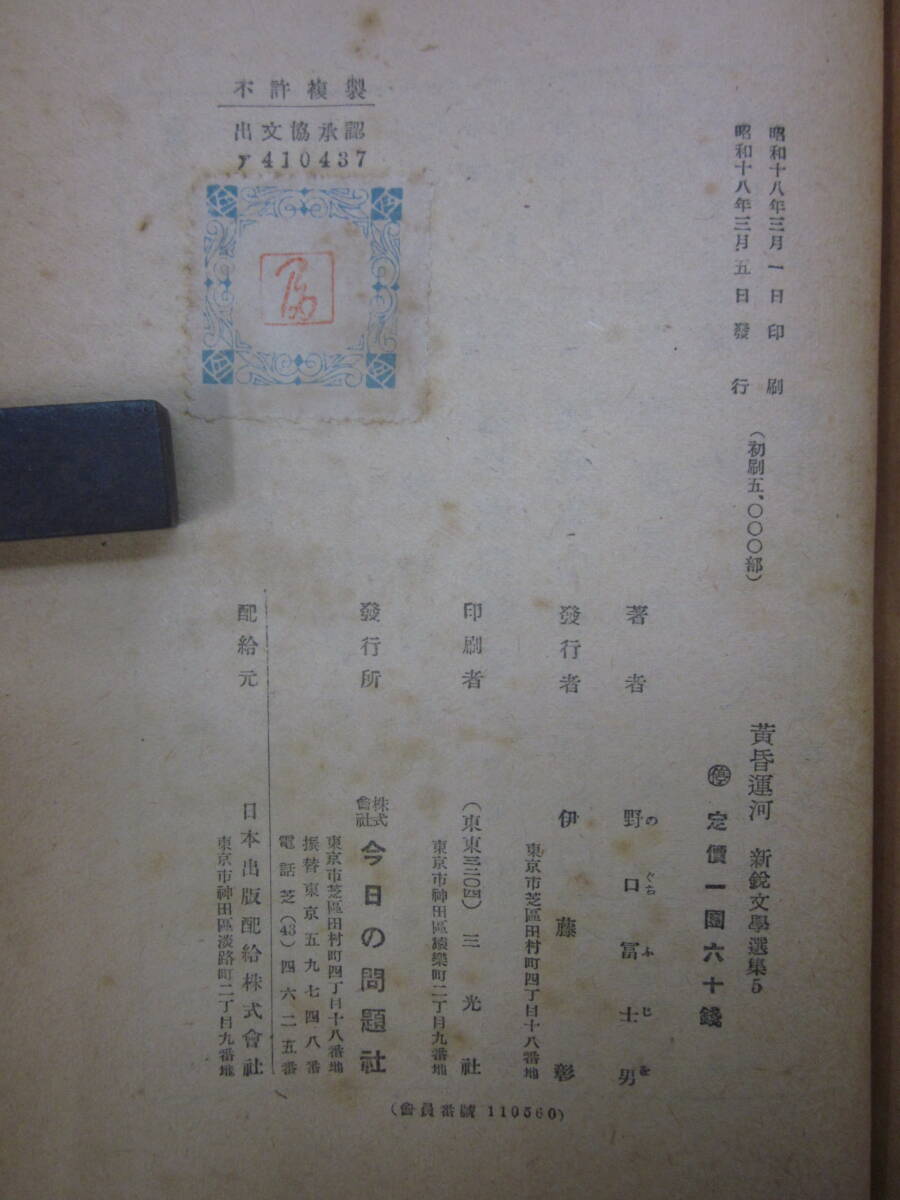 不許複製
出文協承認
ア410437
昭和十八年三月一日印刷
昭和十八年三月五日發行
（初刷五、〇〇〇部）
黃昏運河　新銳文學選集5
㊡定價一圓六十錢
著者　野口冨士男
のぐちふじを
發行者　伊藤彰
東京市芝區田村町四丁目十八番地
印刷者　（東東三三〇四）三光社
東京市神田區猿樂町二丁目九番地
發行所　株式會社今日の問題社
東京市芝區田村町四丁目十八番地
振替東京五九七四八番
電話芝(43)四六二五番
配給元　日本出版配給株式會社
東京市神田區淡路町二丁目九番地
（會員番號 110560）